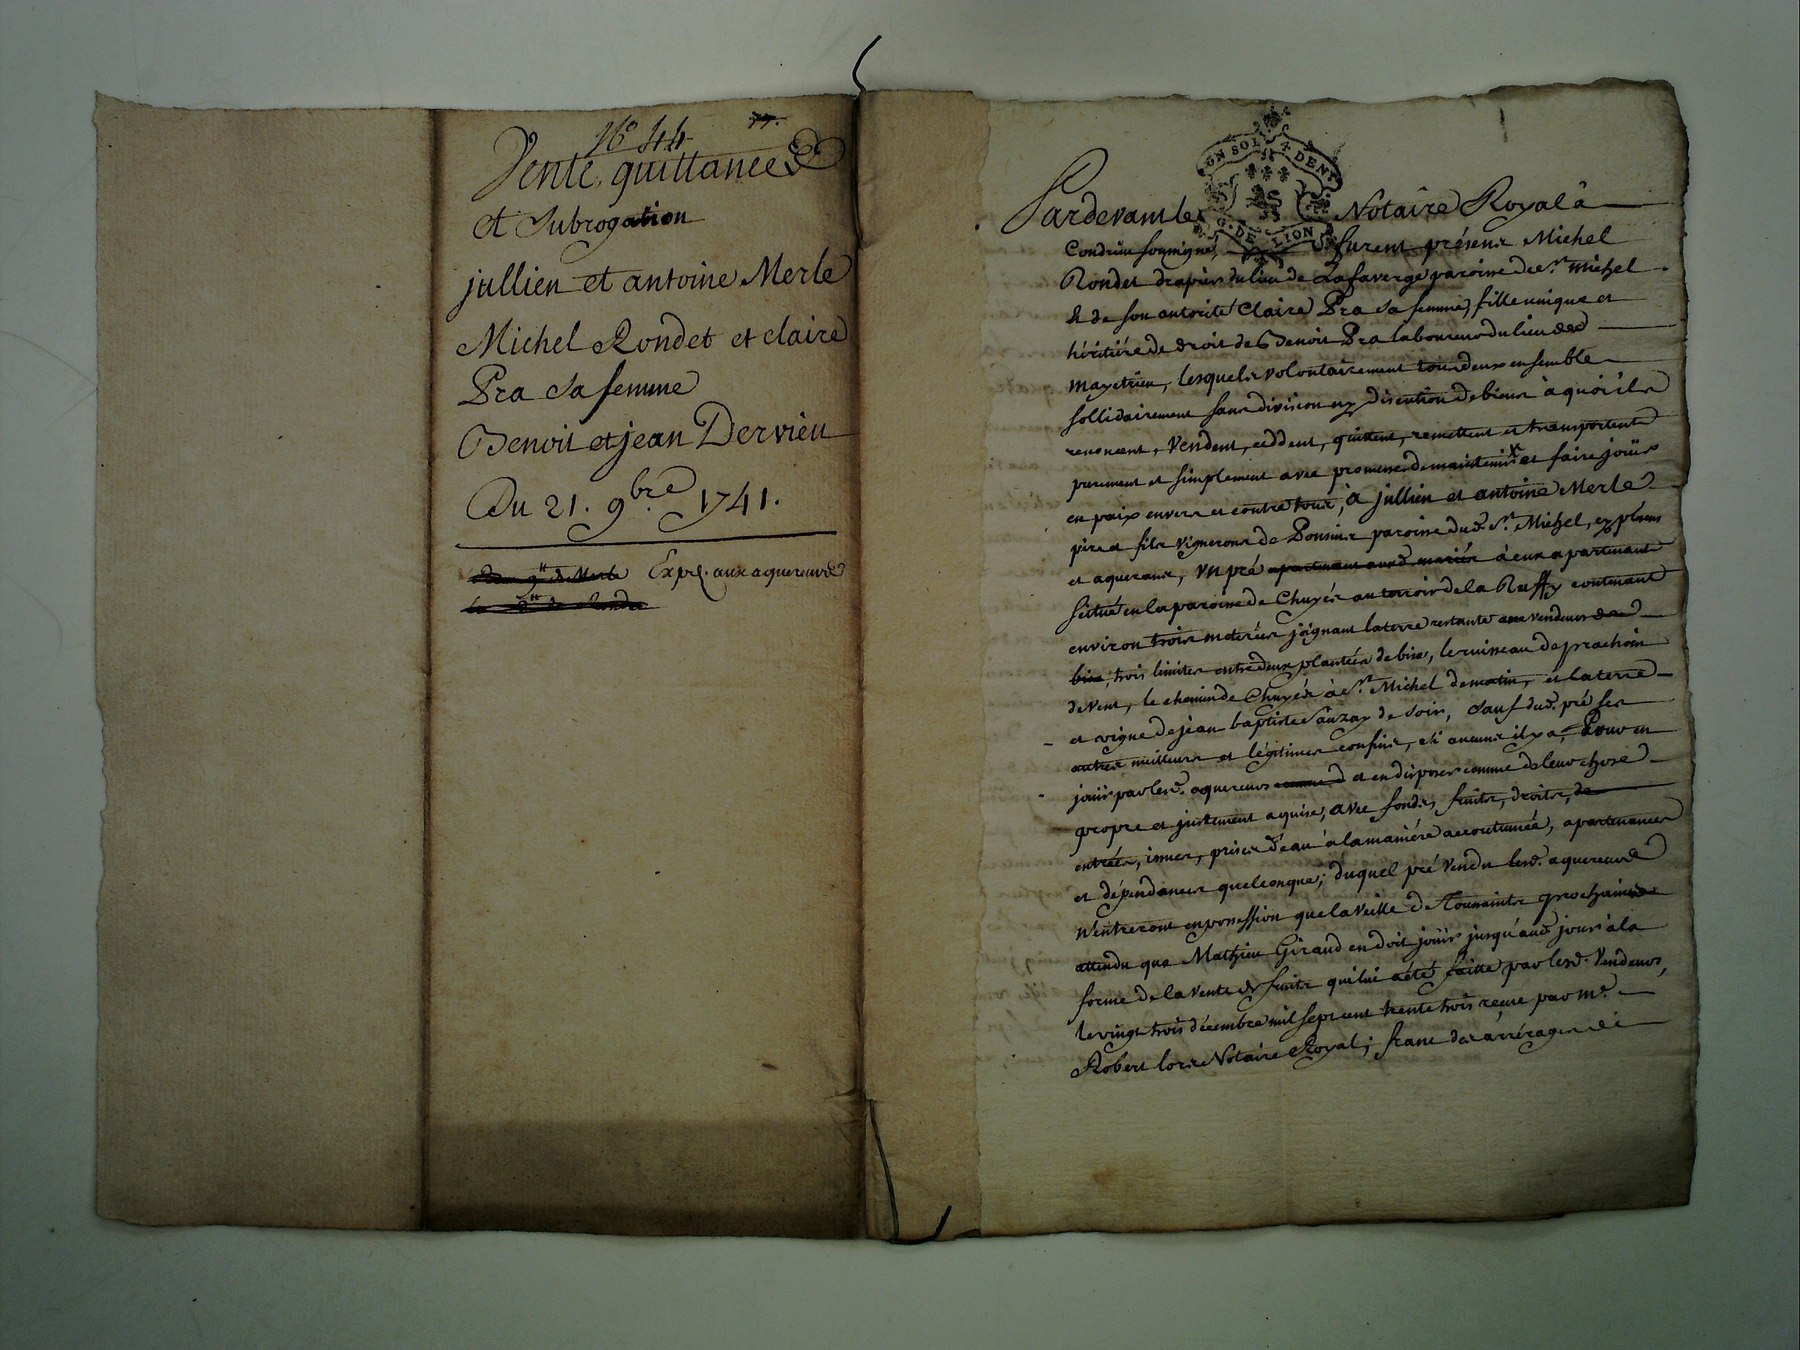 n.° 44
Vente, quittance
et Subrogation
jullien et antoine Merle
Michel Rondet et claire
Pra Sa femme
Benoit et jean Dervieu
Du 21. 9.bre 1741.
Exp.é aux aquereurs
UN SOL 4 DEN.
G. DE LION
Pardevant le Notaire Royal à
Condrieu soussigné, furent présens Michel
Rondet drapier du lieu de Lafaverge paroisse de S.t Michel
& de son autorité Claire Pra Sa femme, fille unique et
héritière de droit de Benoit Pra laboureur du lieu de
lesquels volontairement tous deux ensemble
sollidairement sans division ny discution de biens à quoi ils
renoncent, Vendent, ceddent, quittent, remettent et transportent
purement et simplement avec promesse de maintenir et faire joüir
en paix envers et contre tous, à jullien et antoine Merle
père et fils vignerons de Ponsin paroisse dud. S.t Michel, présens
et aquerans, un pré apartenant aud. mariés à eux apartenant
situé en la paroisse de Chuyés au terroir de la Ruffy contenant
environ trois meterées joignant la terre restante aux vendeurs de
bise, trois limites entredeux plantées de bise, le ruisseau de
de vent, le chemin de Chuyés à S.t Michel de matin, et la terre
et vigne de jean baptiste Sauzay de soir, Sauf dud. pré ses
autres meilleurs et légitimes confins, si aucuns il y a, Pour en
joüir par lesd. aquereurs et en disposer comme de leur chose
propre et justement aquise, avec fonds, fruits, droits, de
entrées, issues, prises d'eau à la manière accoutumée, apartenances
et dépendances quelconque; duquel pré Vendu lesd. aquereurs
n'entreront en possession que la veille de Toussaints prochaine
attendu que Mathieu Giraud en doit joüir jusqu'aud. jour à la
forme de la Vente de fruits qui lui a été faitte par lesd. Vendeurs,
le vingt trois décembre mil sept cent trente trois reçue par M.e
Robert lors Notaire Royal; franc des arrérages de